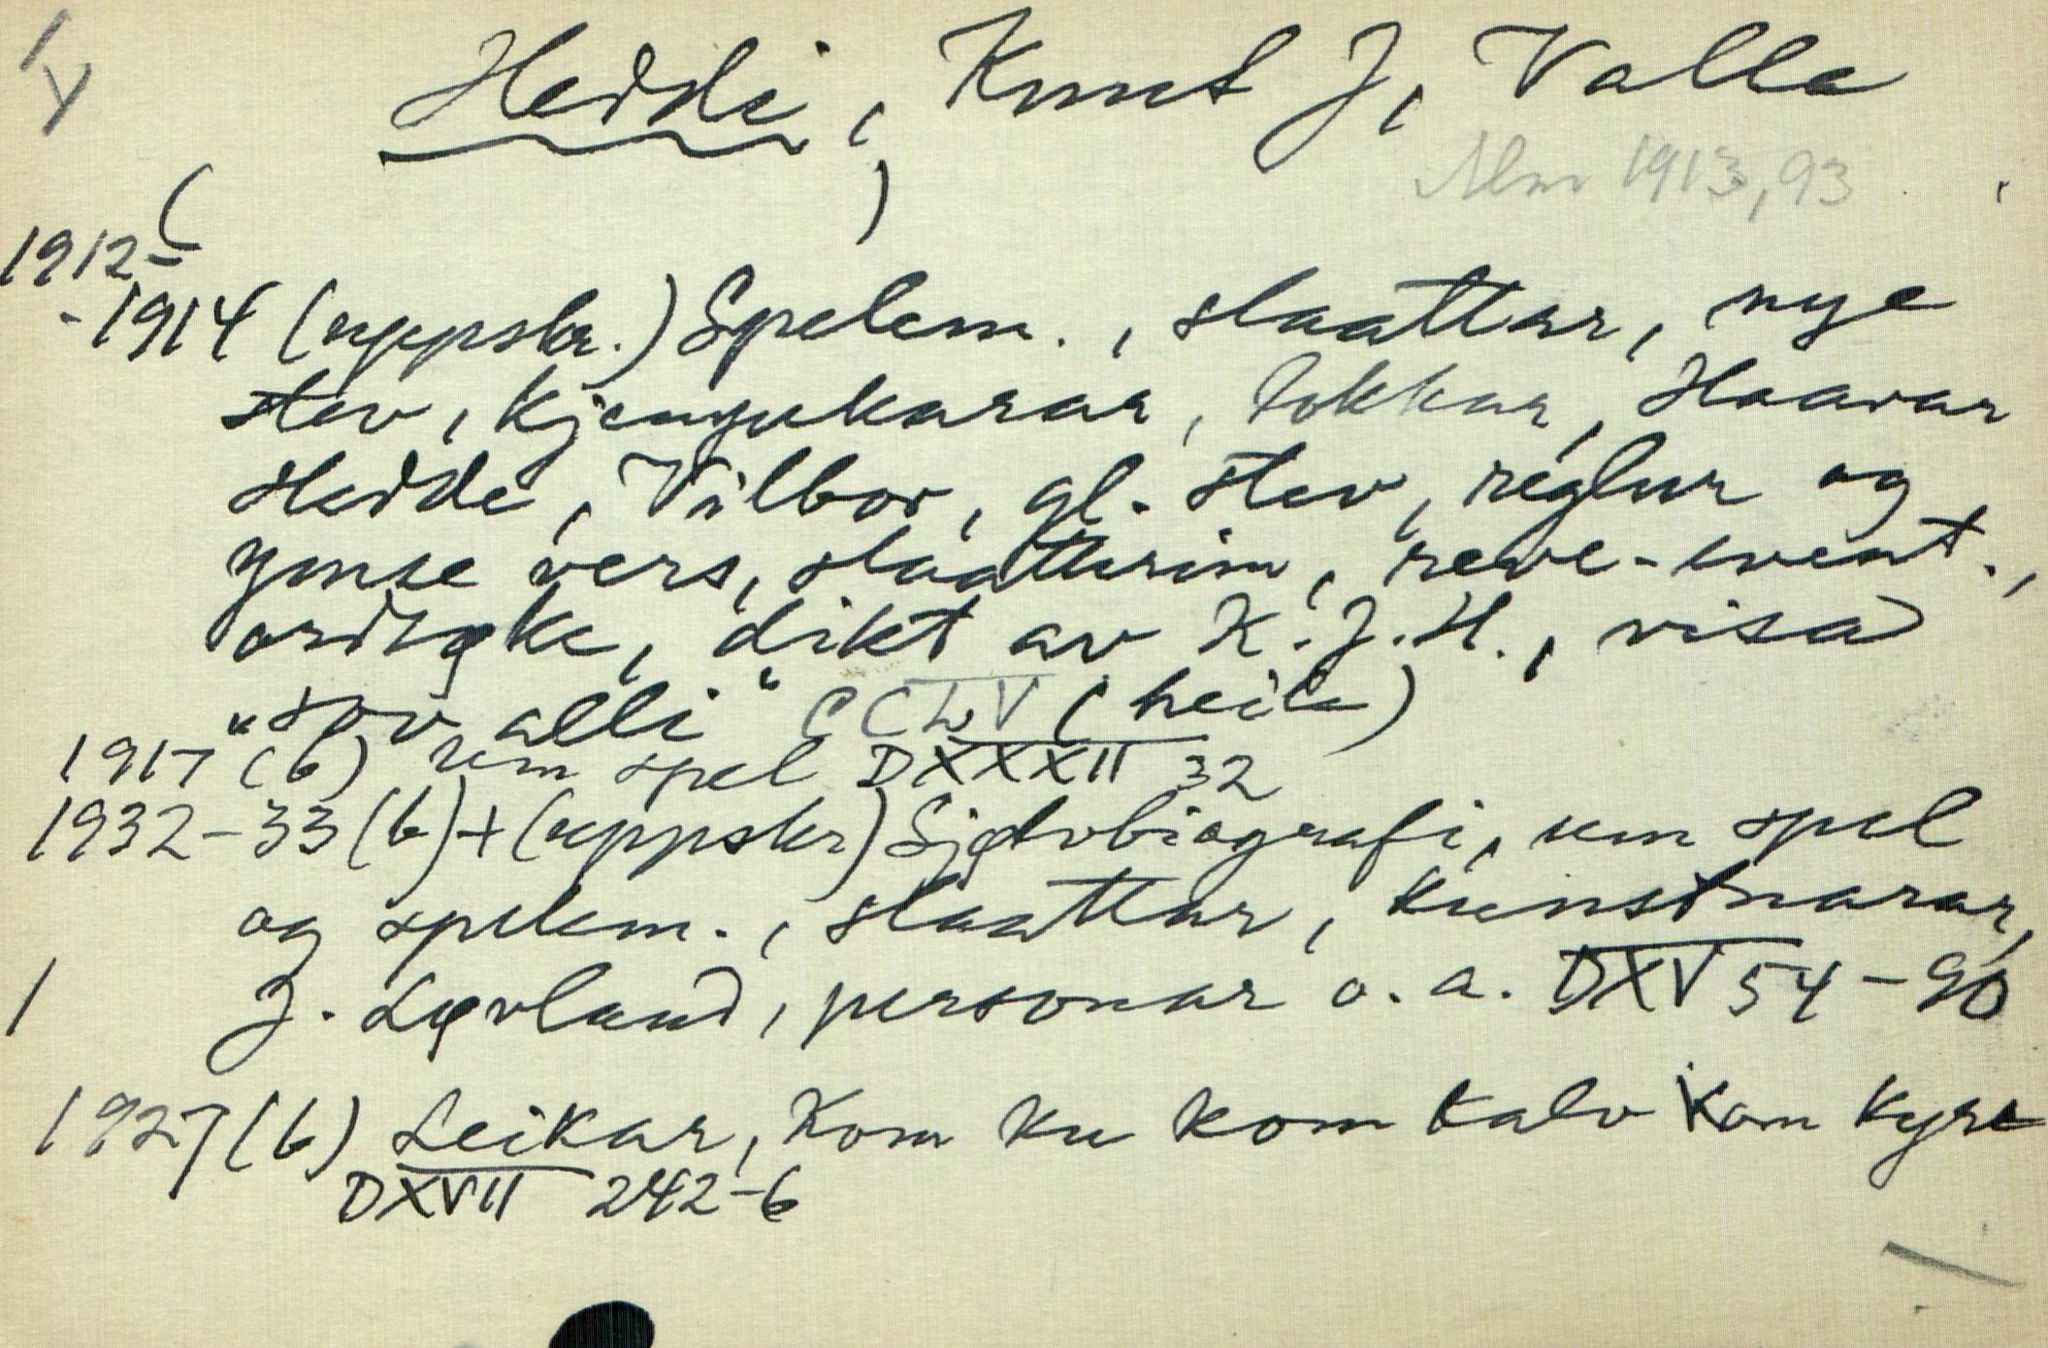 Heddi, Knut J, Valle
Alm 1913, 93
1912-
-1914 (uppskr.) Spelem., slaattar, nye
stev, kjempekarar, tokkar, Haavar
Hedde, Vilbor, gl. stev, reglur og
ymse vers, slaatterim, reve-event.,
ordtøke, dikt av K.J.H., visa
"sov alli" CCLV (heile)
1917 (b) um spel DXXXII 32
1932-33 (b) + (uppskr) Sjølvbiografi, um spel
og spelem., slaattar, kunstnarar,
J. Løvland, personar o. a. DXV 54-90
1927 (b) Leikar, Kom ku kom kalv kom kyre
DXVII 242-6